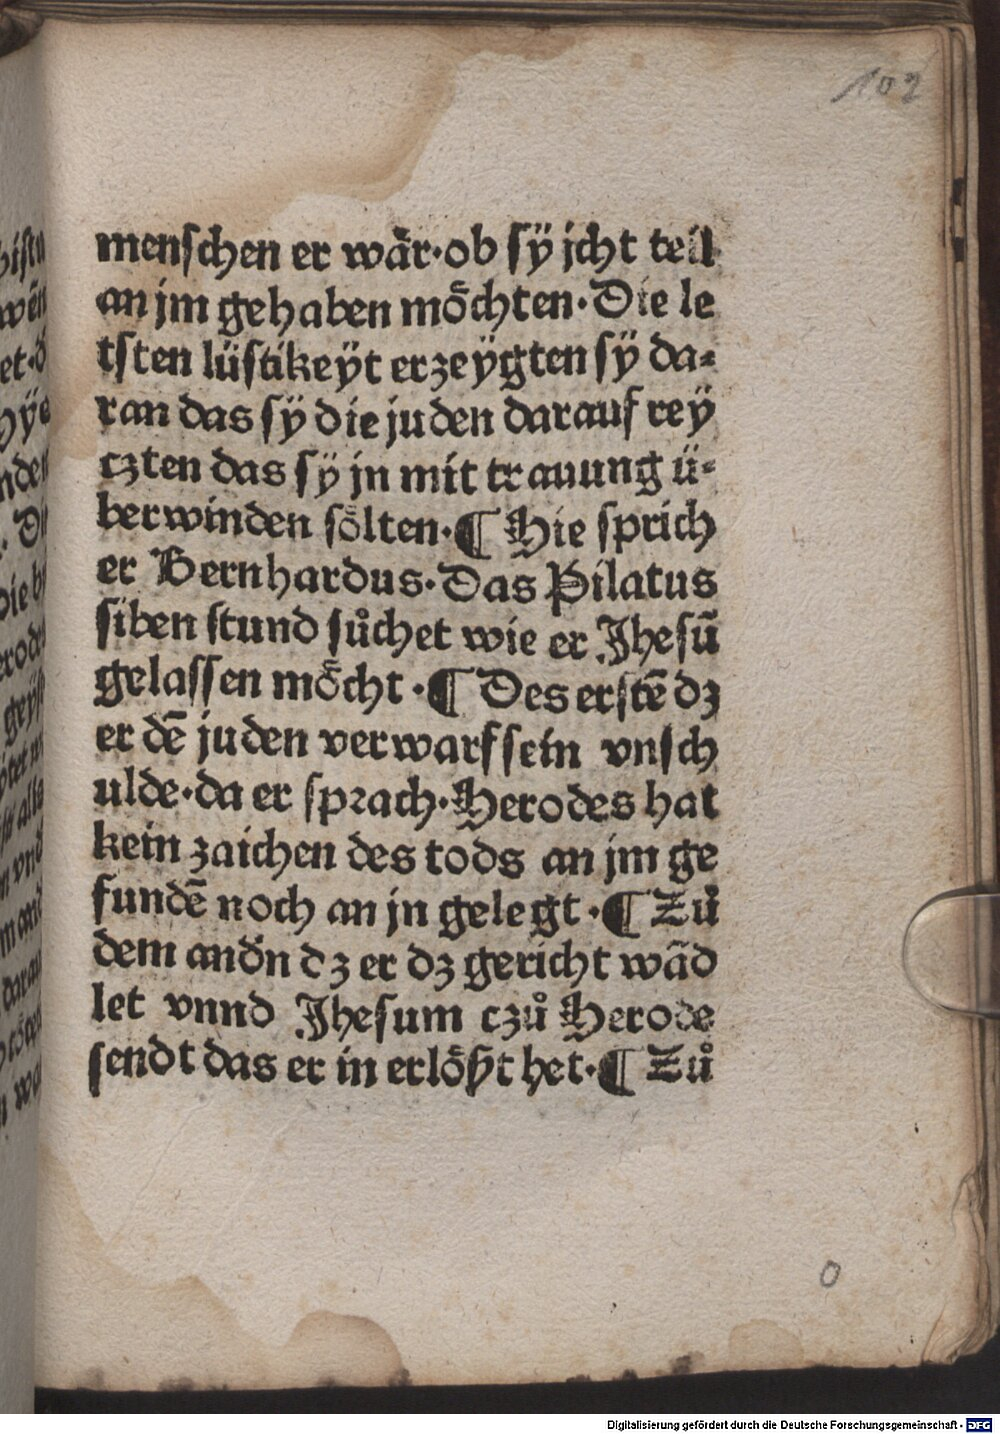 102
menschen er wår·ob sÿ jcht teil
an jm gehaben mo᷑chten·Die le
tsten lüstikeÿt erzeÿgten sÿ da⸗
ran das sÿ die juden darauf reÿ
czten das sÿ jn mit trauung ü⸗
berwinden sölten·¶ Hie sprich
er Bernhardus·Das Pilatus
siben stund sůchet wie er Jhesū
gelassen möcht·¶ Des erstē dz
er dē juden verwarf sein vnsch
ulde·da er sprach·Herodes hat
kein zaichen des tods an jm ge
fundē noch an jn gelegt·¶ Zů
dem andn̄ dz er dz gericht wād
let vnnd Jhesum czů Herode
sendt das er in erlößt het·¶ Zů
0
Digitalisierung gefördert durch die Deutsche Forschungsgemeinschaft - DFG